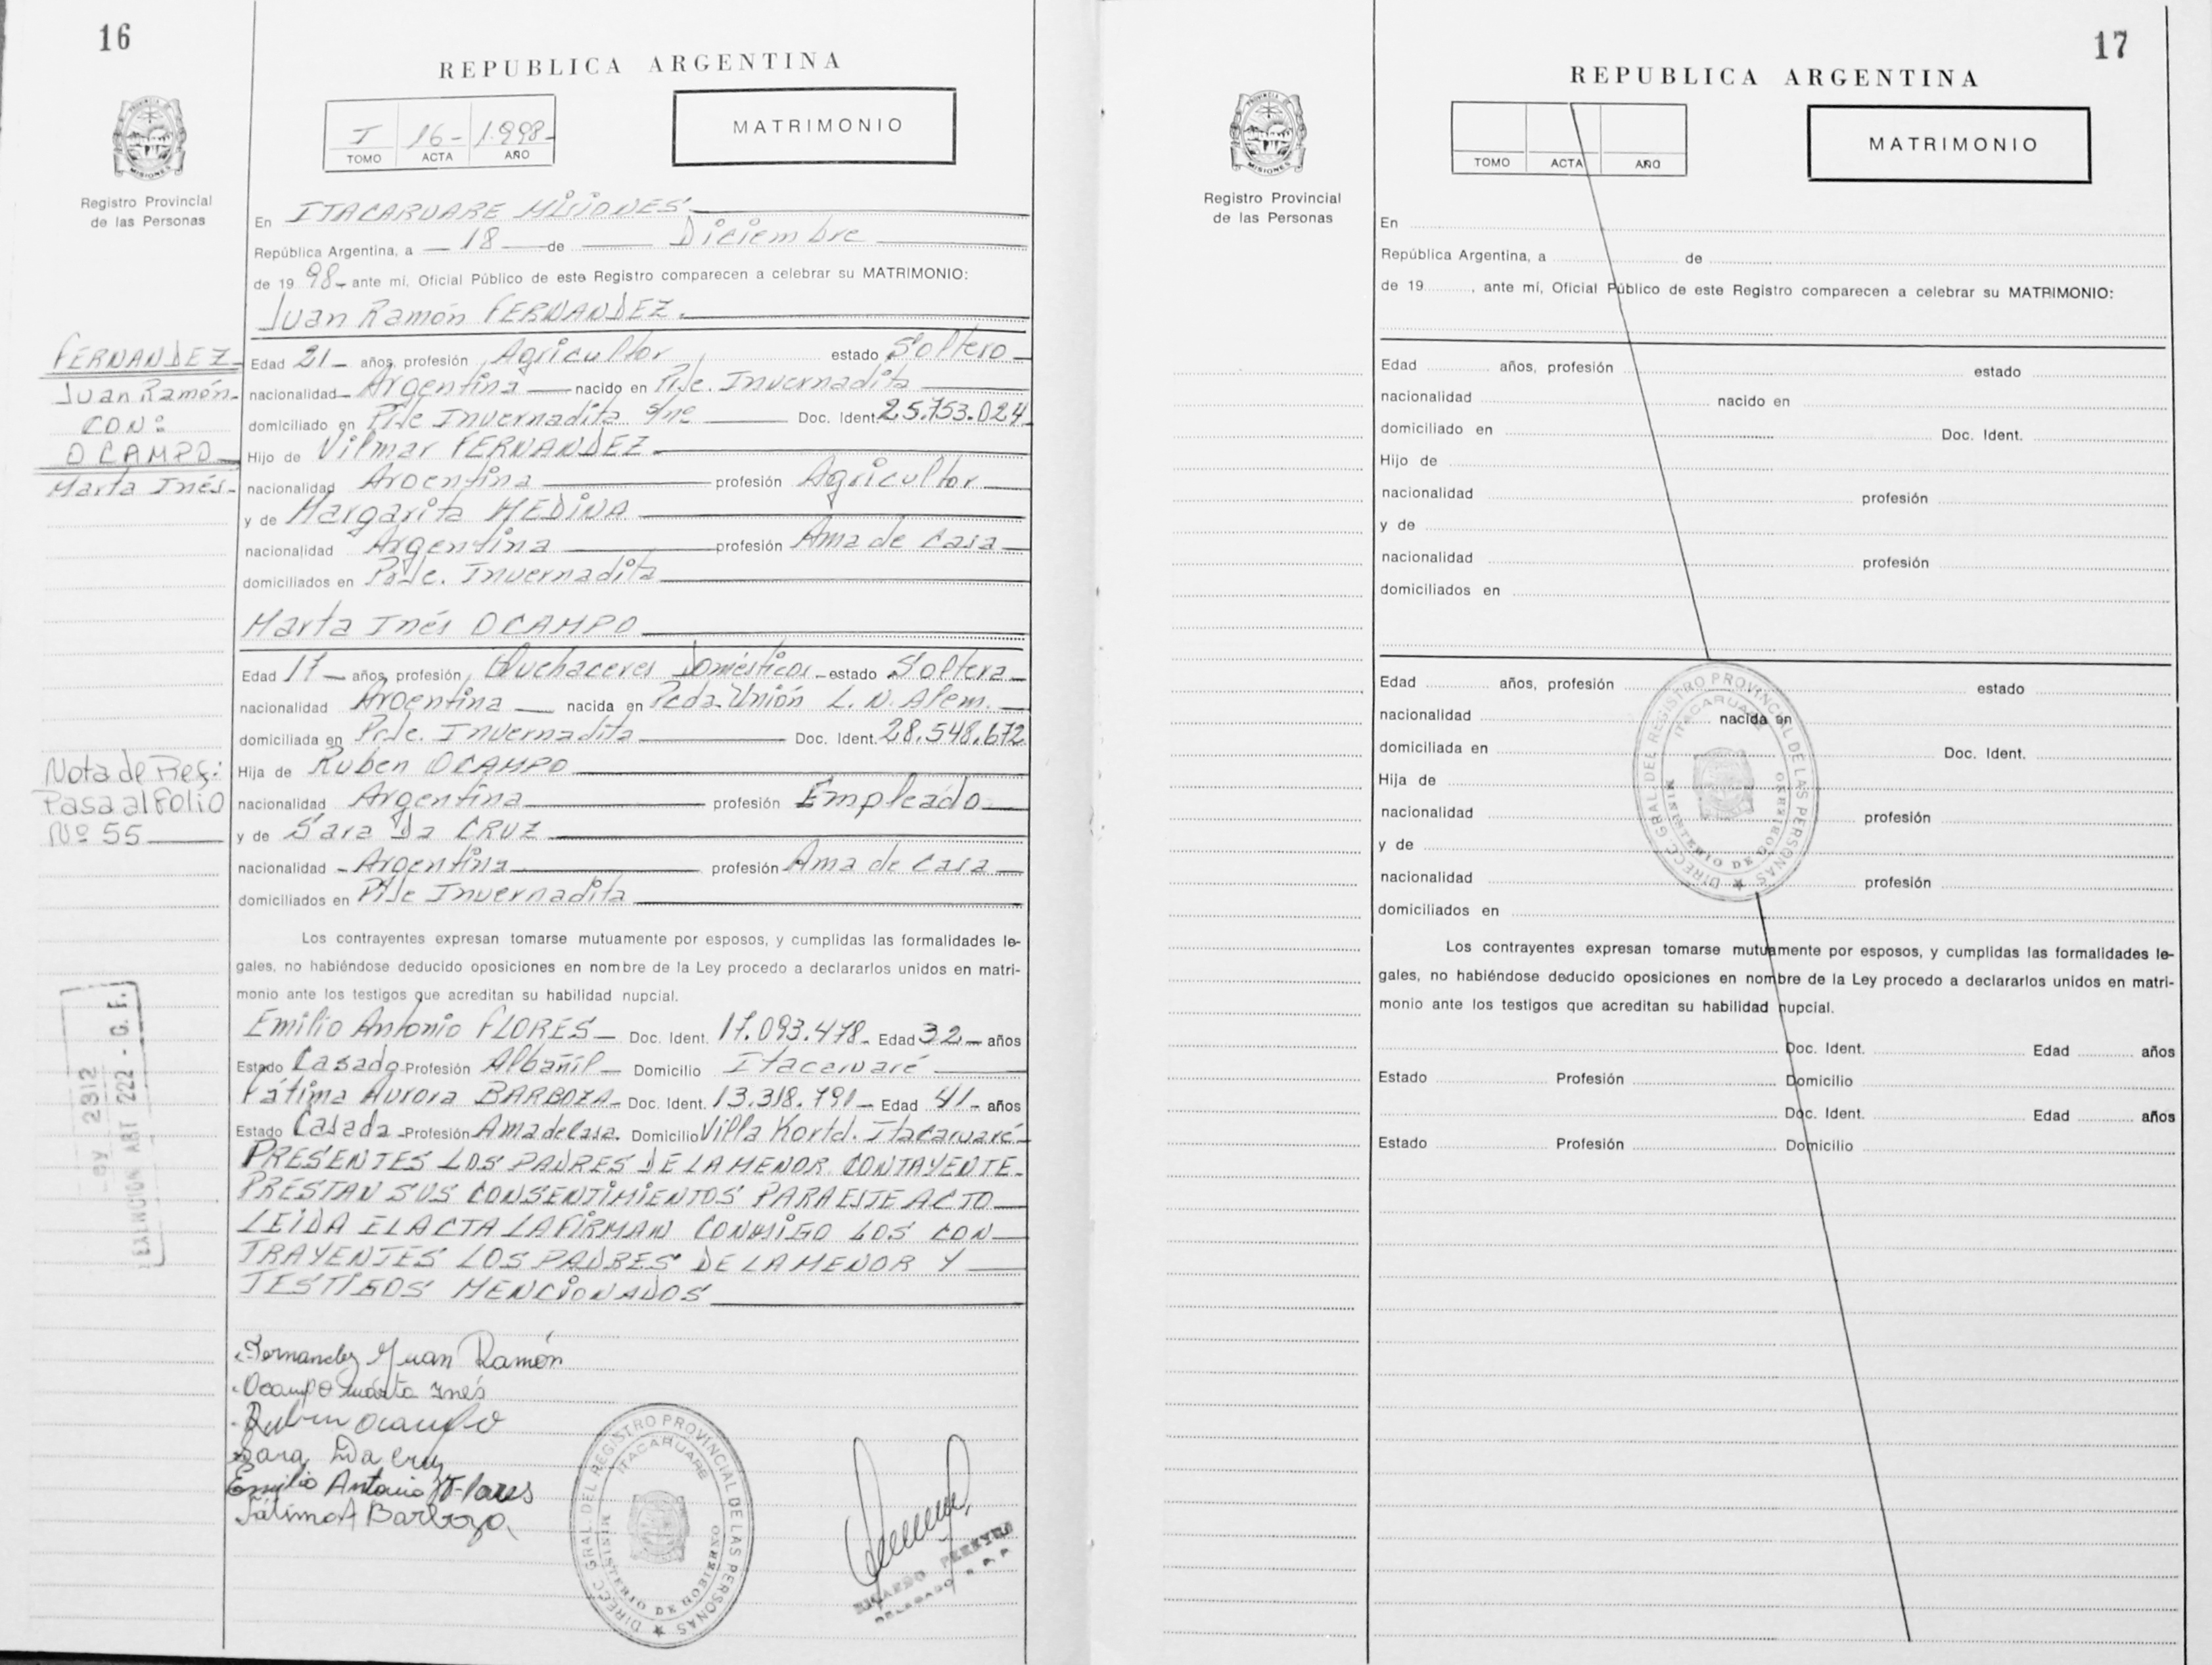 16
REPUBLICA ARGENTINA
PROVINCIA
MISIONES
Registro Provincial
de las Personas
I 16- 1.998-
TOMO ACTA AÑO
MATRIMONIO
En ITACARUARE MISIONES
República Argentina, a 18 de Diciembre
de 19 98 ante mí, Oficial Público de este Registro comparecen a celebrar su MATRIMONIO:
Juan Ramón FERNANDEZ.
FERNANDEZ
Juan Ramón-
CON:
OCAMPO
Marta Inés-
Edad 21 años, profesión Agricultor estado Soltero
nacionalidad Argentina nacido en Pje. Invernadita
domiciliado en Pje Invernadita s/nº Doc. Ident. 25.753.024
Hijo de Vilmar FERNANDEZ
nacionalidad Argentina profesión Agricultor
y de Margarita MEDINA
nacionalidad Argentina profesión Ama de Casa
domiciliados en Pje. Invernadita
Marta Inés OCAMPO
Edad 17 años, profesión Quehaceres Domésticos estado Soltera
nacionalidad Argentina nacida en Pcda. Unión L. N. Alem.
domiciliada en Pje. Invernadita Doc. Ident. 28.548.672
Hija de Ruben OCAMPO
nacionalidad Argentina profesión Empleado
y de Sara Da CRUZ
nacionalidad Argentina profesión Ama de Casa
domiciliados en Pje Invernadita
Nota de Ref:
Pasa al Folio
Nº 55
Los contrayentes expresan tomarse mutuamente por esposos, y cumplidas las formalidades le-
gales, no habiéndose deducido oposiciones en nombre de la Ley procedo a declararlos unidos en matri-
monio ante los testigos que acreditan su habilidad nupcial.
Emilio Antonio FLORES Doc. Ident. 17.093.478 Edad 32 años
Estado Casado Profesión Albañil Domicilio Itacaruaré
Fátima Aurora BARBOZA Doc. Ident. 13.318.791 Edad 41 años
Estado Casada Profesión Ama de Casa. Domicilio Villa Kortd. Itacaruaré
PRESENTES LOS PADRES DE LA MENOR CONTAYENTE
PRESTAN SUS CONSENTIMIENTOS PARA ESTE ACTO
LEIDA EL ACTA LA FIRMAN CONMIGO LOS CON
TRAYENTES LOS PADRES DE LA MENOR Y
TESTIGOS MENCIONADOS
2312
EXENCION ART 222 - G. F.
Fernandez Juan Ramón
Ocampo Marta Inés
Ruben Ocampo
Sara Da Cruz
Emilio Antonio Flores
Fátima A Barboza
DIRECC. GRAL DEL REGISTRO PROVINCIAL DE LAS PERSONAS
ITACARUARE
MINISTERIO DE GOBIERNO
RICARDO PEREYRA
DELEGADO R. P. P.
17
REPUBLICA ARGENTINA
PROVINCIA
MISIONES
Registro Provincial
de las Personas
TOMO ACTA AÑO
MATRIMONIO
En
República Argentina, a de
de 19 , ante mí, Oficial Público de este Registro comparecen a celebrar su MATRIMONIO:
Edad años, profesión estado
nacionalidad nacido en
domiciliado en Doc. Ident.
Hijo de
nacionalidad profesión
y de
nacionalidad profesión
domiciliados en
Edad años, profesión estado
nacionalidad nacida en
domiciliada en Doc. Ident.
Hija de
nacionalidad profesión
y de
nacionalidad profesión
domiciliados en
DIRECC. GRAL DEL REGISTRO PROVINCIAL DE LAS PERSONAS
ITACARUARE
MINISTERIO DE GOBIERNO
Los contrayentes expresan tomarse mutuamente por esposos, y cumplidas las formalidades le-
gales, no habiéndose deducido oposiciones en nombre de la Ley procedo a declararlos unidos en matri-
monio ante los testigos que acreditan su habilidad nupcial.
Doc. Ident. Edad años
Estado Profesión Domicilio
Doc. Ident. Edad años
Estado Profesión Domicilio